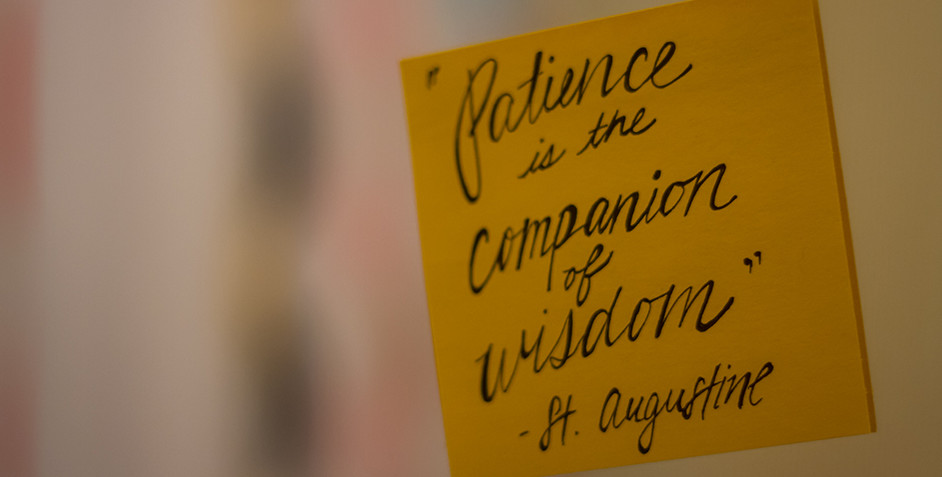 "Patience
is the
companion
of
wisdom"
- St. Augustine